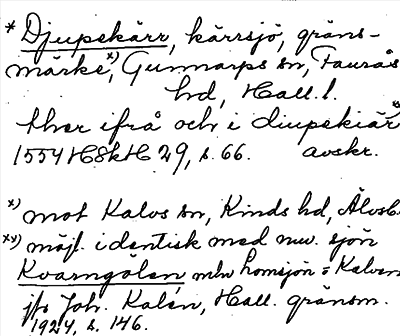 * Djupekärr, kärrsjö, gräns-
märke x), Gunnarps sn, Faurås
hd, Hall. l.
ther ifrå och i diupekiär xx)
1554 HSkH 29, s. 66. avskr.
x) mot Kalvs sn, Kinds hd, Älvsb.
xx) möjl. identisk med nuv. sjön
Kvarngölen mln Lomsjön o Kalven
jfr Joh. Kalén, Hall. gränsm.
1924, s. 146.